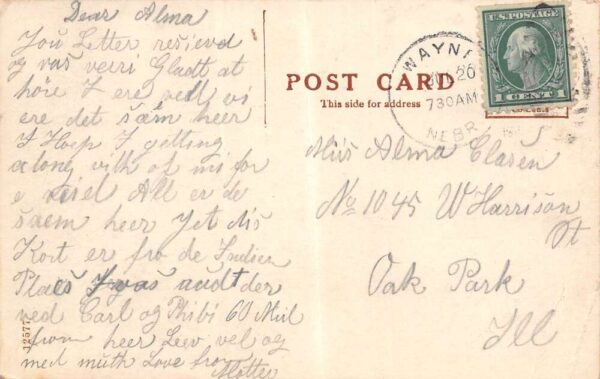 Dear Alma
You Letter resievd
og vas veiri Gladt at
höre I ere vell vi
ere det säm heer
I Hoep I getting
along vith of mi for
e All er de
säem heer Jet dis
Kort er fro de Indien
Plaes I vas audt der
ved Carl og Phibi 60 Miil
from heer Leev vel og
med muth Love from
Motter
12577
POST CARD
This side for address
WAYNE
20
730AM
NEBR
U.S. POSTAGE
1 CENT 1
Miss Alma Clasen
No 1045 W Harrison
St
Oak Park
Ill